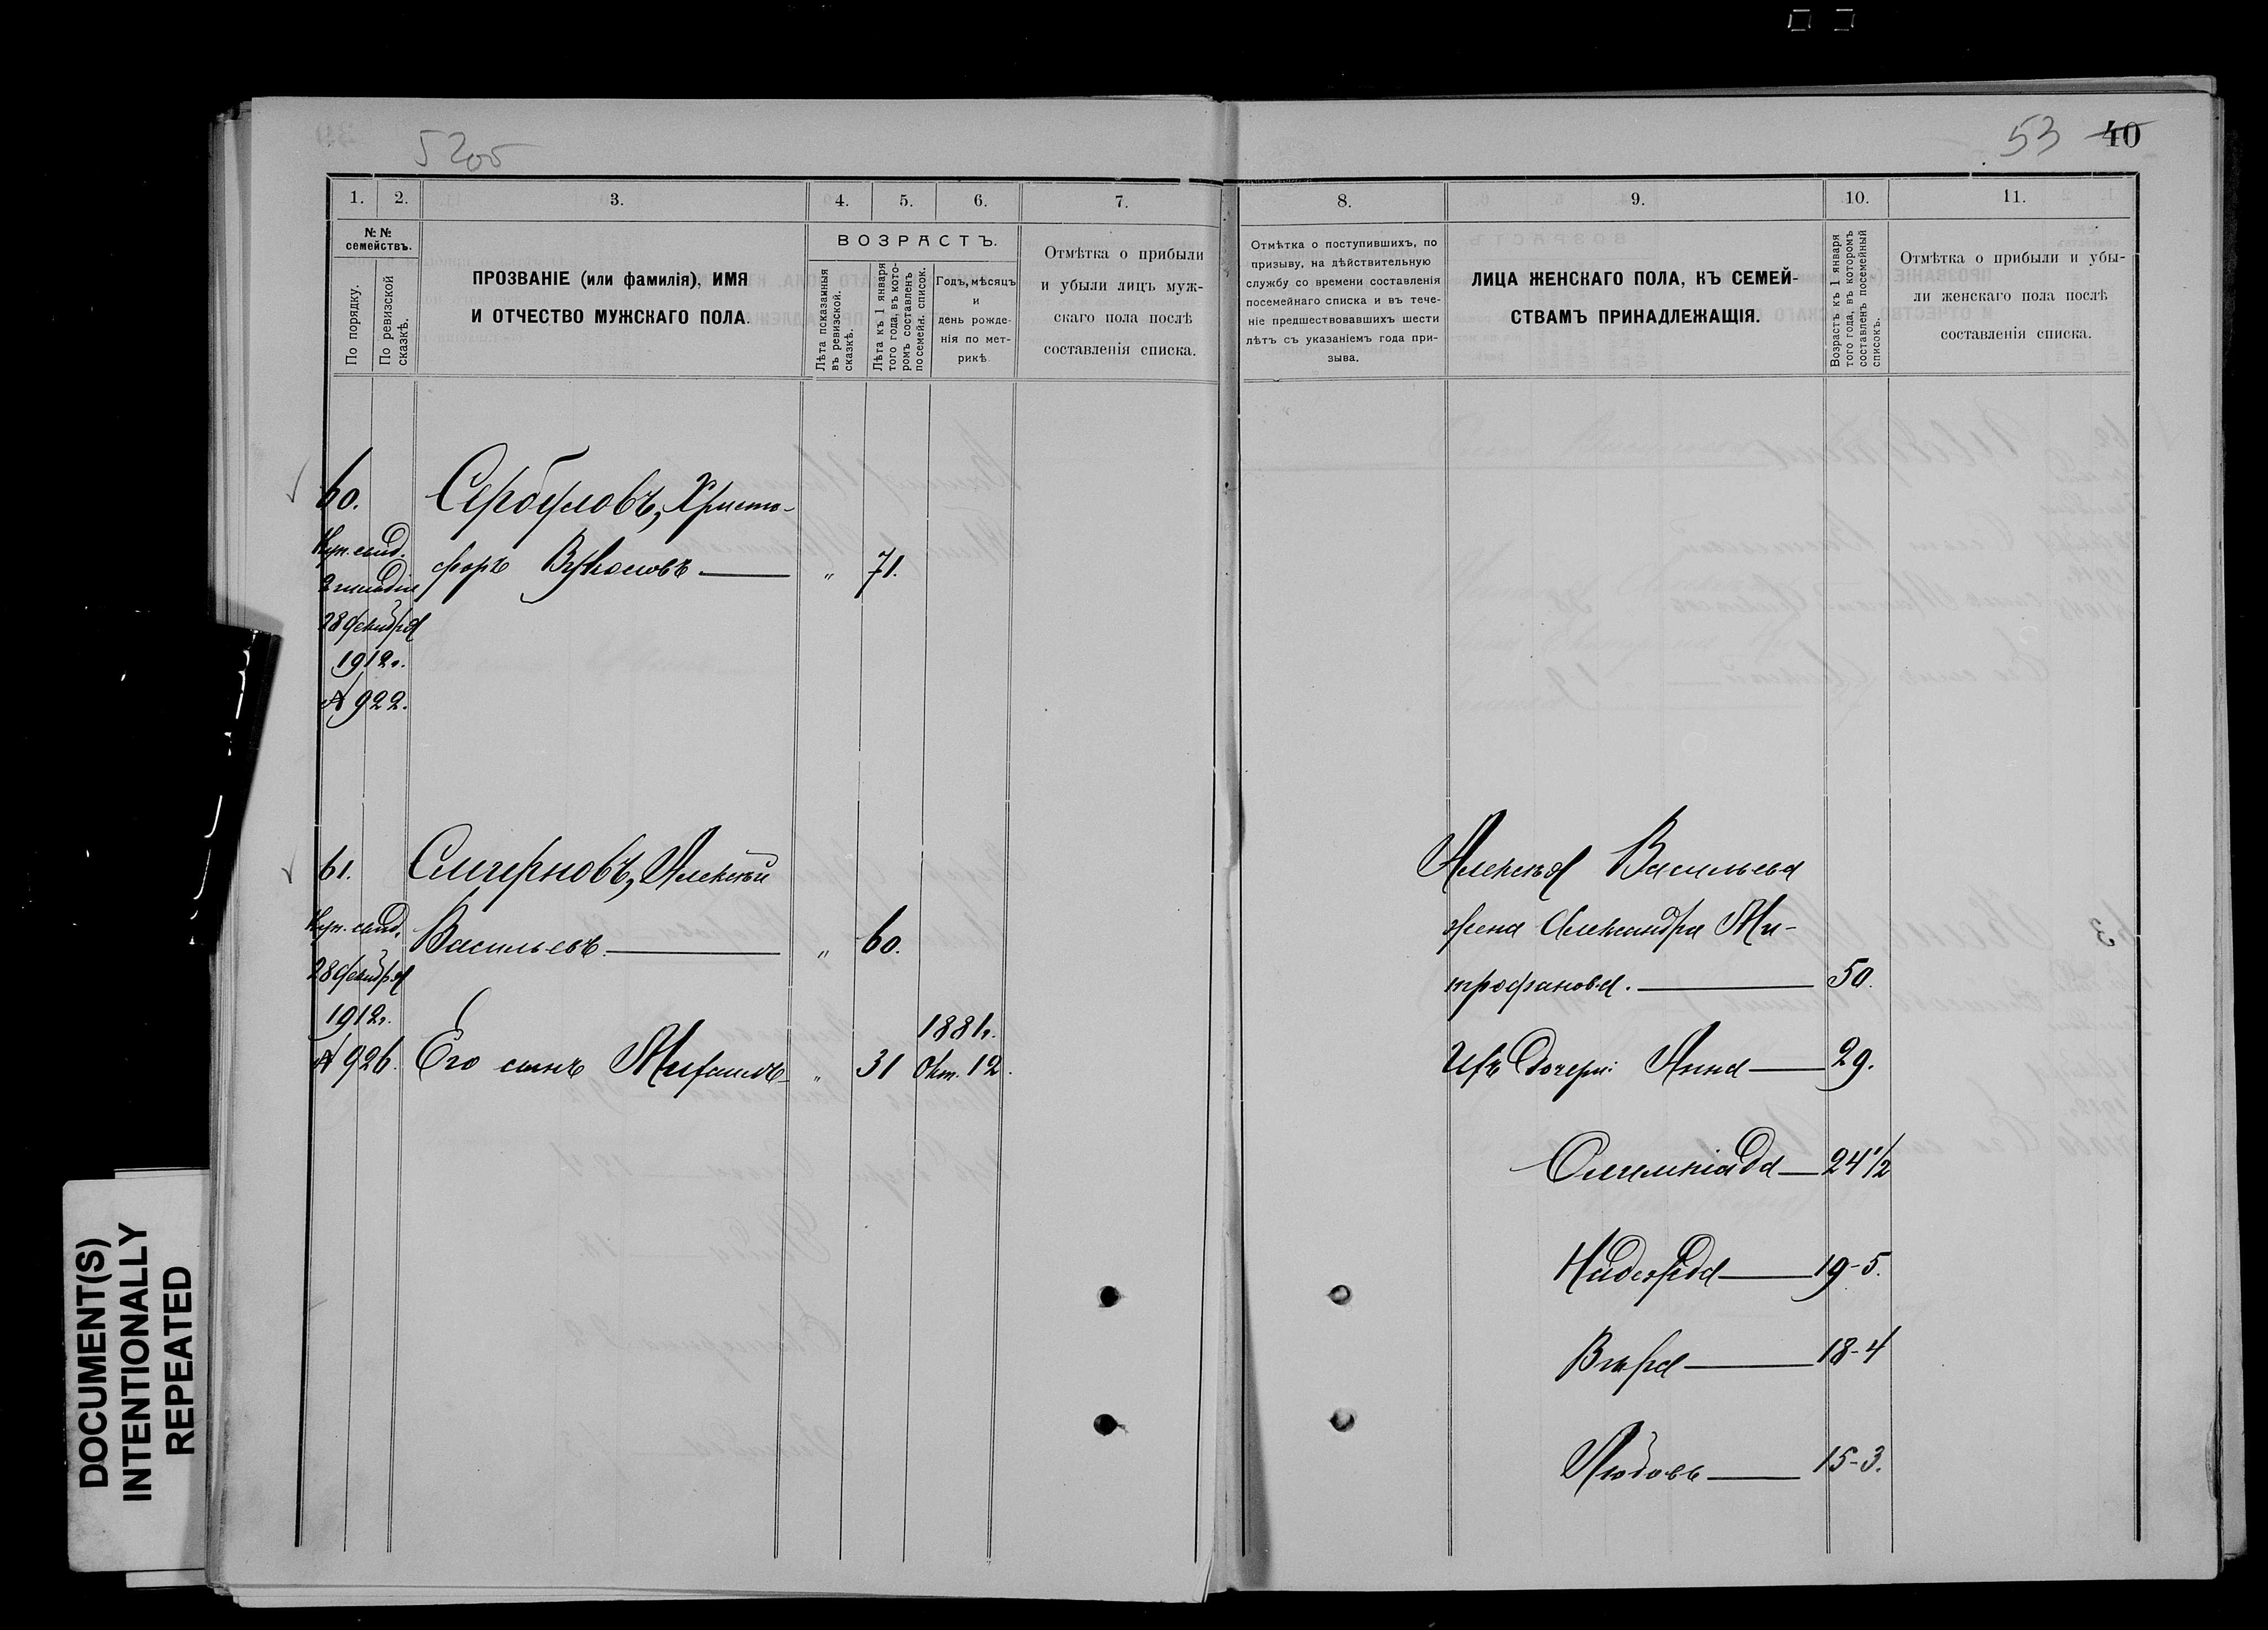 5205
53 40
1. 2. 3. 4. 5. 6. 7.
№ №
семействъ.
По порядку.
По ревизской
сказкѣ.
ПРОЗВАНІЕ (или фамилія), ИМЯ
И ОТЧЕСТВО МУЖСКАГО ПОЛА.
ВОЗРАСТЪ.
Лѣта показанныя
въ ревизской.
сказкѣ.
Лѣта къ 1 января
того года, въ кото-
ромъ составленъ
посемейн. список.
Годъ, мѣсяцъ
и
день рожде-
нія по мет-
рикѣ.
Отмѣтка о прибыли
и убыли лицъ муж-
скаго пола послѣ
составленія списка.
8. 9. 10. 11.
Отмѣтка о поступившихъ, по
призыву, на дѣйствительную
службу со времени составленія
посемейнаго списка и въ тече-
ніе предшествовавшихъ шести
лѣтъ съ указаніемъ года при-
зыва.
ЛИЦА ЖЕНСКАГО ПОЛА, КЪ СЕМЕЙ-
СТВАМЪ ПРИНАДЛЕЖАЩІЯ.
Возрастъ къ 1 января
того года, въ которомъ
составленъ посемейный
списокъ.
Отмѣтка о прибыли и убы-
ли женскаго пола послѣ
составленія списка.
60. Сербуловъ, Христо-
форъ " 71.
Куп. свид.
2 гильдіи
28 декабря
1912 г.
№ 922.
61. Смирновъ, Алексѣй
Васильевъ " 60.
Куп. свид.
28 декабря
1912 г.
№ 926.
Его сынъ Михаилъ " 31
1881 г.
Окт. 12.
Алексѣя Васильева
жена Александра Ми-
трофанова. 50.
Ихъ дочери: Анна 29.
Олимпіада 24 1/2
Надежда 19-5.
Вѣра 18-4
Любовь 15-3.
DOCUMENT(S)
INTENTIONALLY
REPEATED